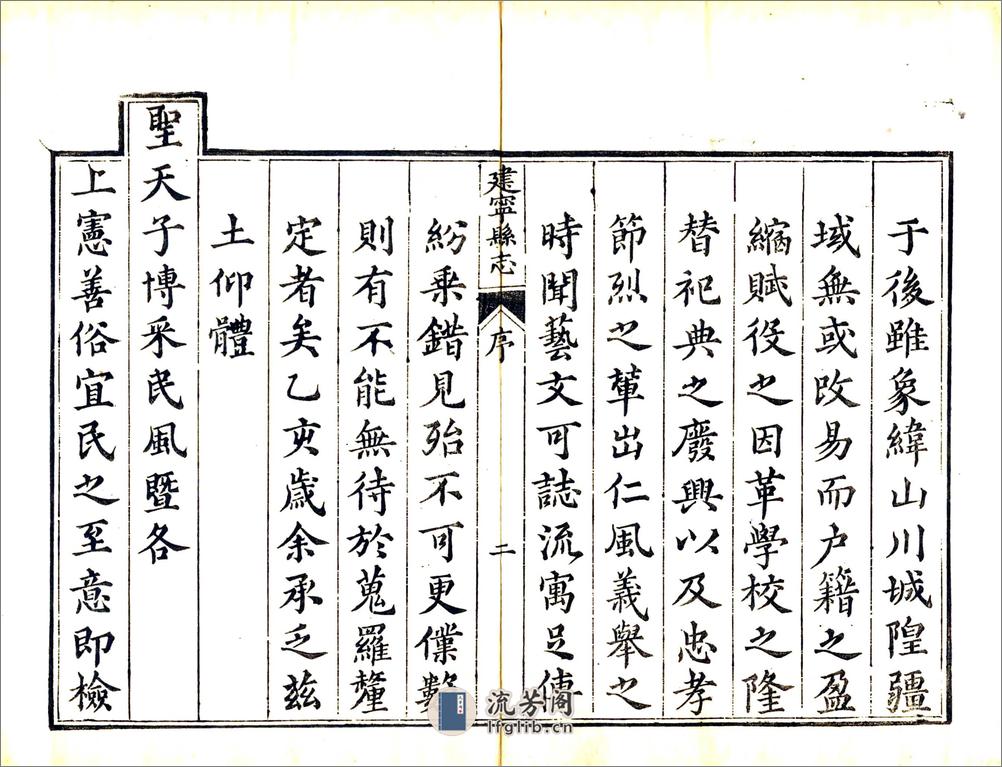 于後雖象緯山川城隍疆
域無或改易而户籍之盈
縮賦役之因革學校之隆
替祀典之廢興以及忠孝
節烈之輩出仁風義舉之
時聞藝文可誌流寓足傳
建寧縣志 序 二
紛乗錯見殆不可更僕數
則有不能無待於蒐羅釐
定者矣乙亥歲余承乏兹
土仰體
聖天子博采民風曁各
上憲善俗宜民之至意即檢
流芳阁
lfglib.com